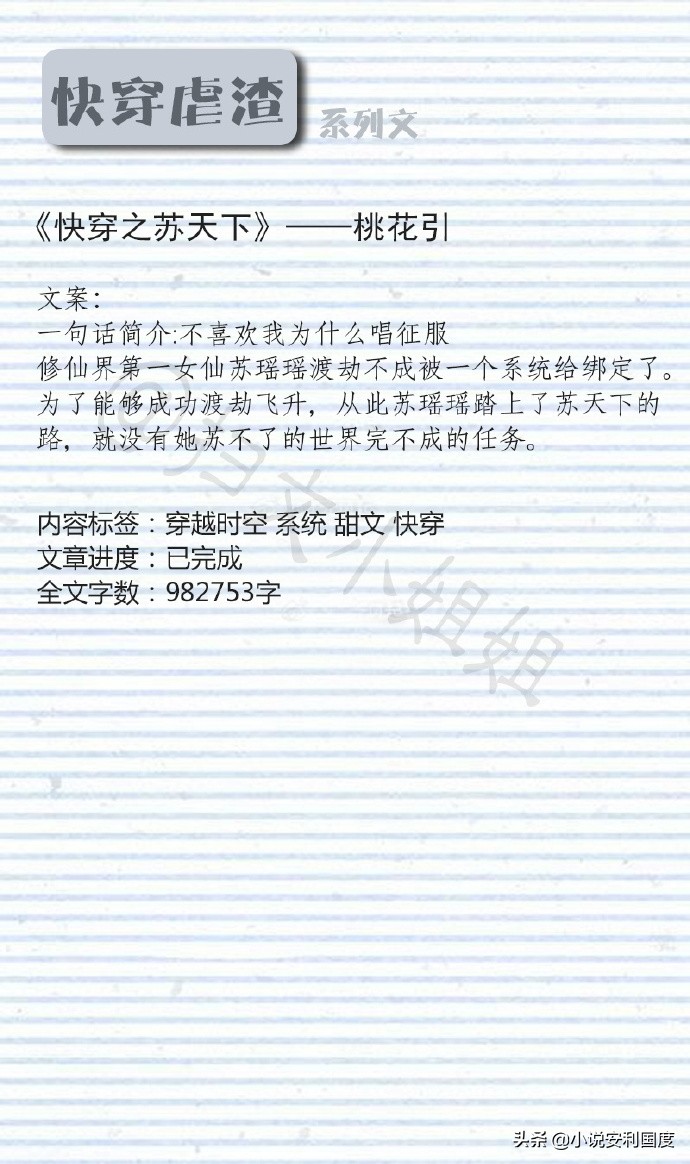 快穿虐渣 系列文
《快穿之苏天下》——桃花引
文案：
一句话简介:不喜欢我为什么唱征服
修仙界第一女仙苏瑶瑶渡劫不成被一个系统给绑定了。
为了能够成功渡劫飞升，从此苏瑶瑶踏上了苏天下的
路，就没有她苏不了的世界完不成的任务。
内容标签：穿越时空 系统 甜文 快穿
文章进度：已完成
全文字数：982753字
@扫文小姐姐
头条 @小说安利国度